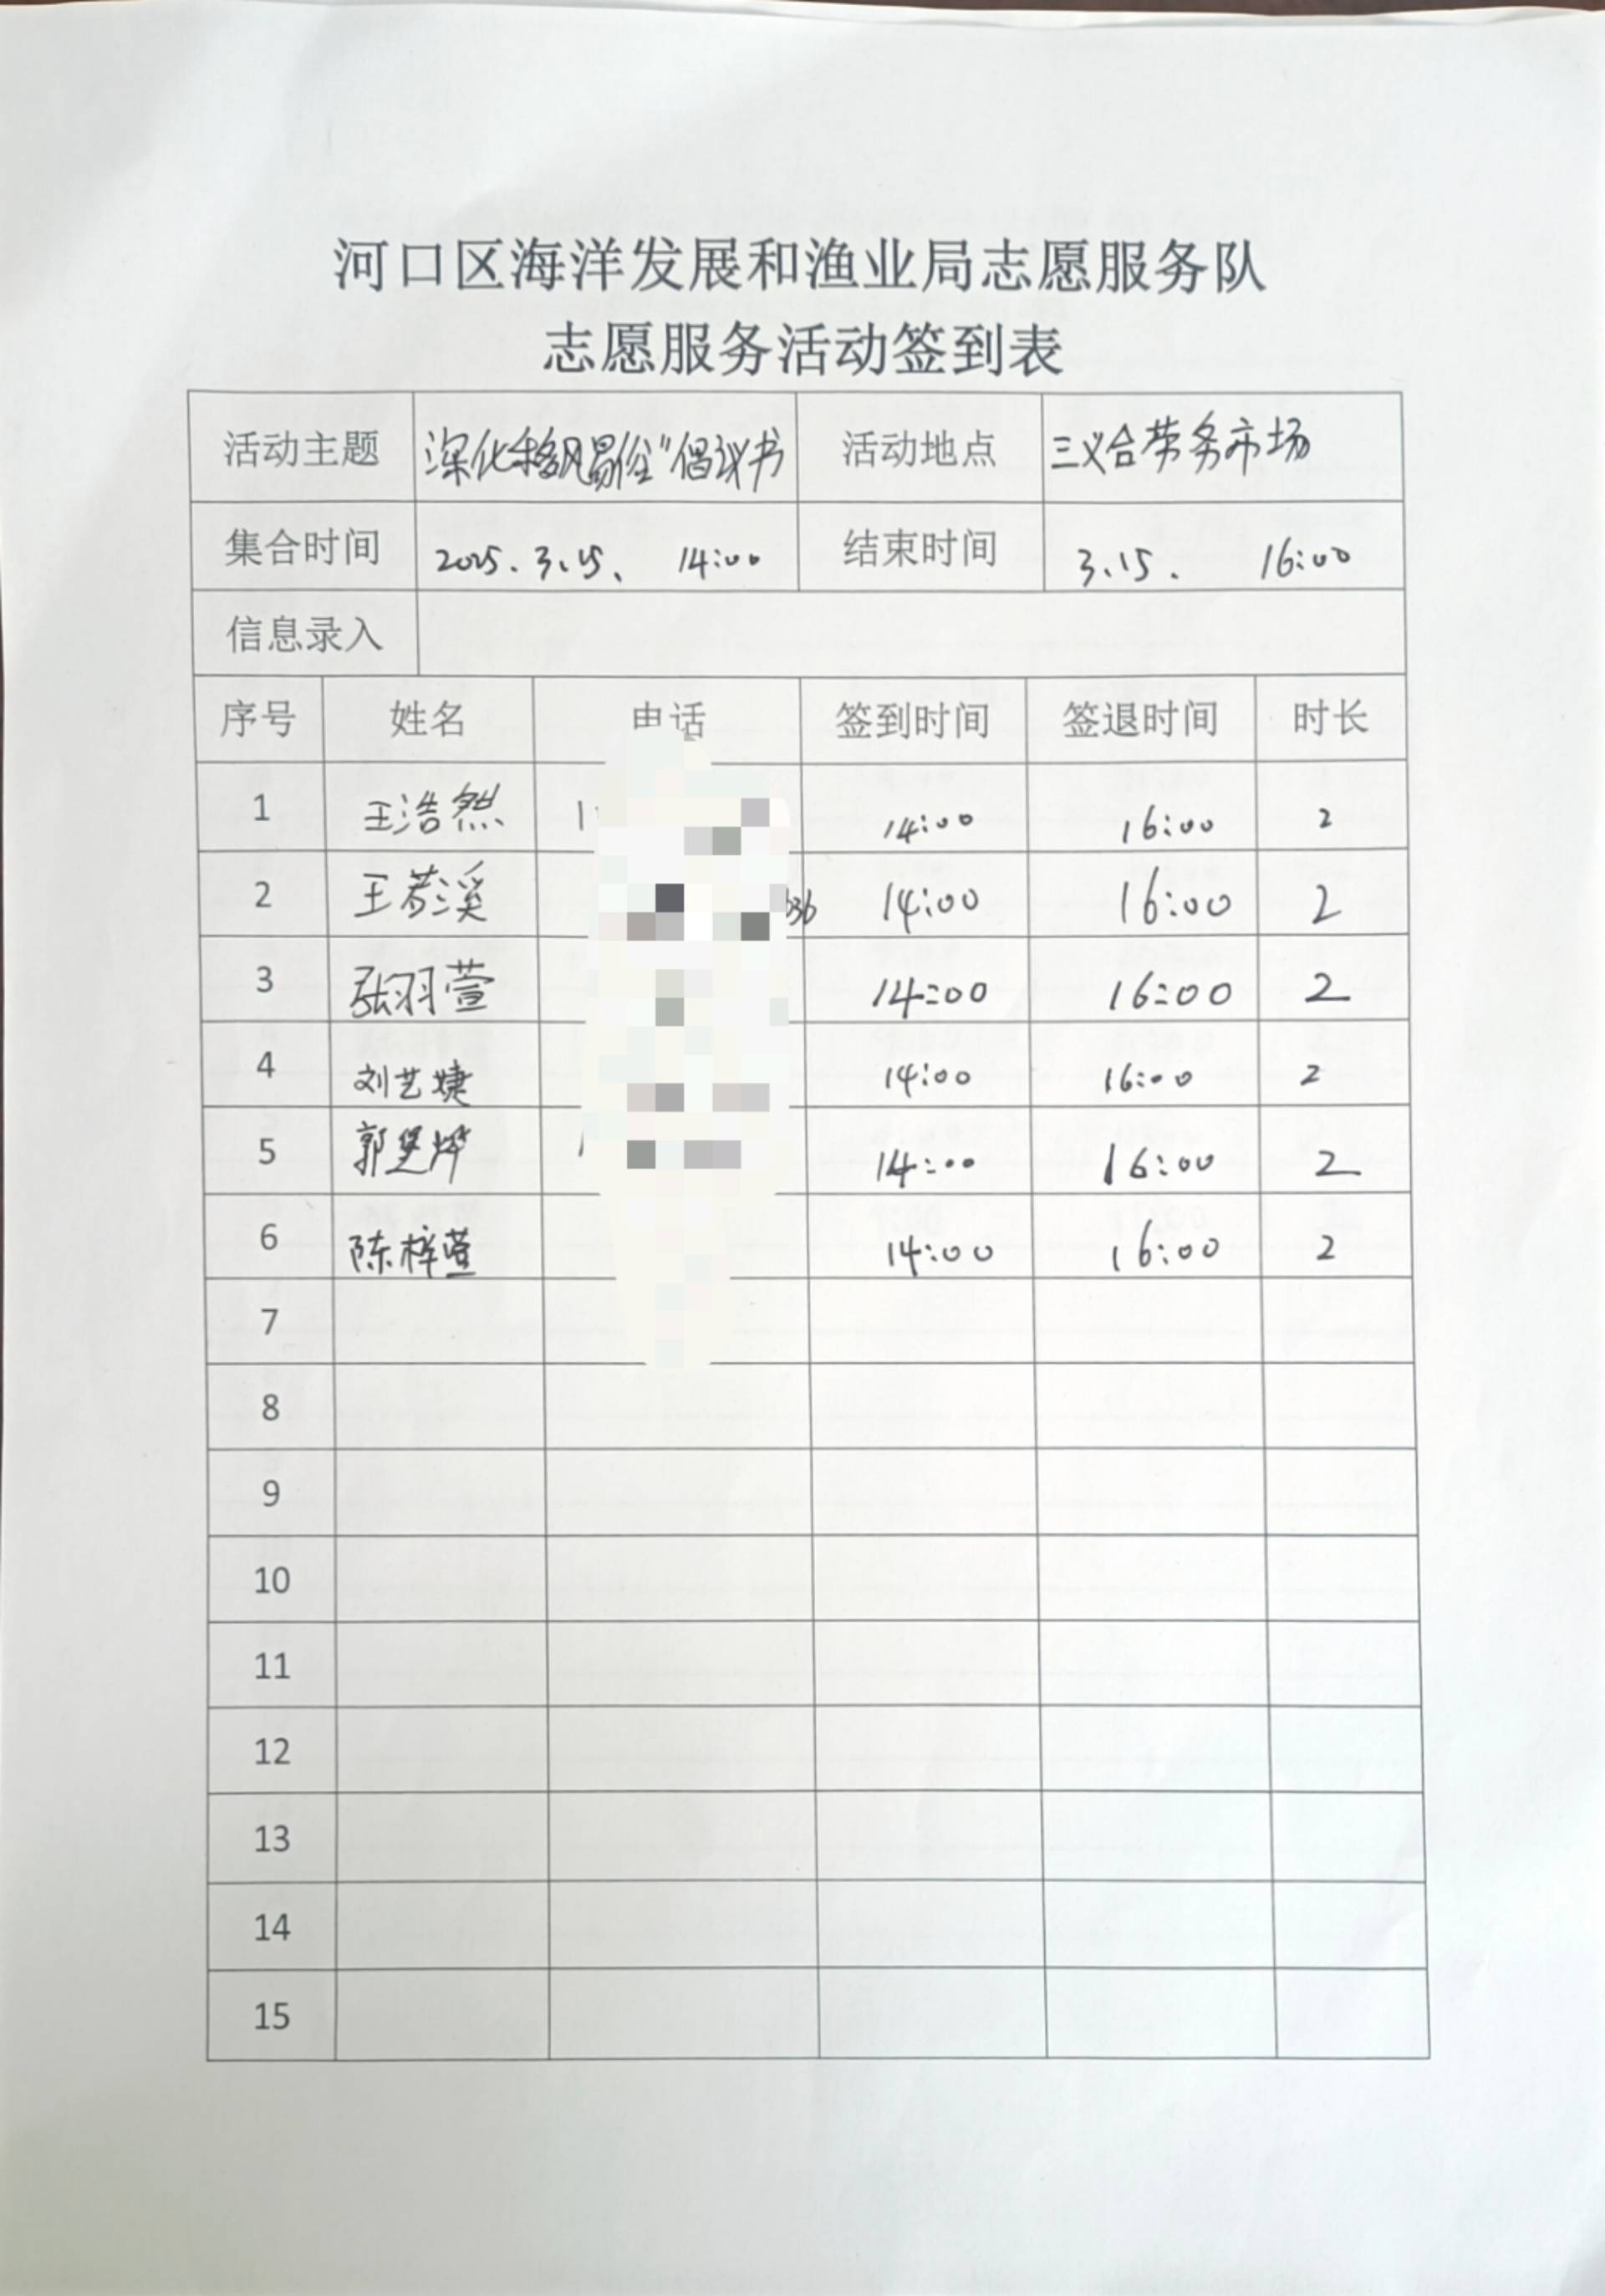 河口区海洋发展和渔业局志愿服务队
志愿服务活动签到表
活动主题 深化移风易俗”倡议书 活动地点 三义合劳务市场
集合时间 2025.3.15、 14:00 结束时间 3.15. 16:00
信息录入
序号 姓名 电话 签到时间 签退时间 时长
1 王浩然 14:00 16:00 2
2 王若溪 14:00 16:00 2
3 张羽萱 14:00 16:00 2
4 刘艺婕 14:00 16:00 2
5 郭 14:00 16:00 2
6 陈梓萱 14:00 16:00 2
7
8
9
10
11
12
13
14
15